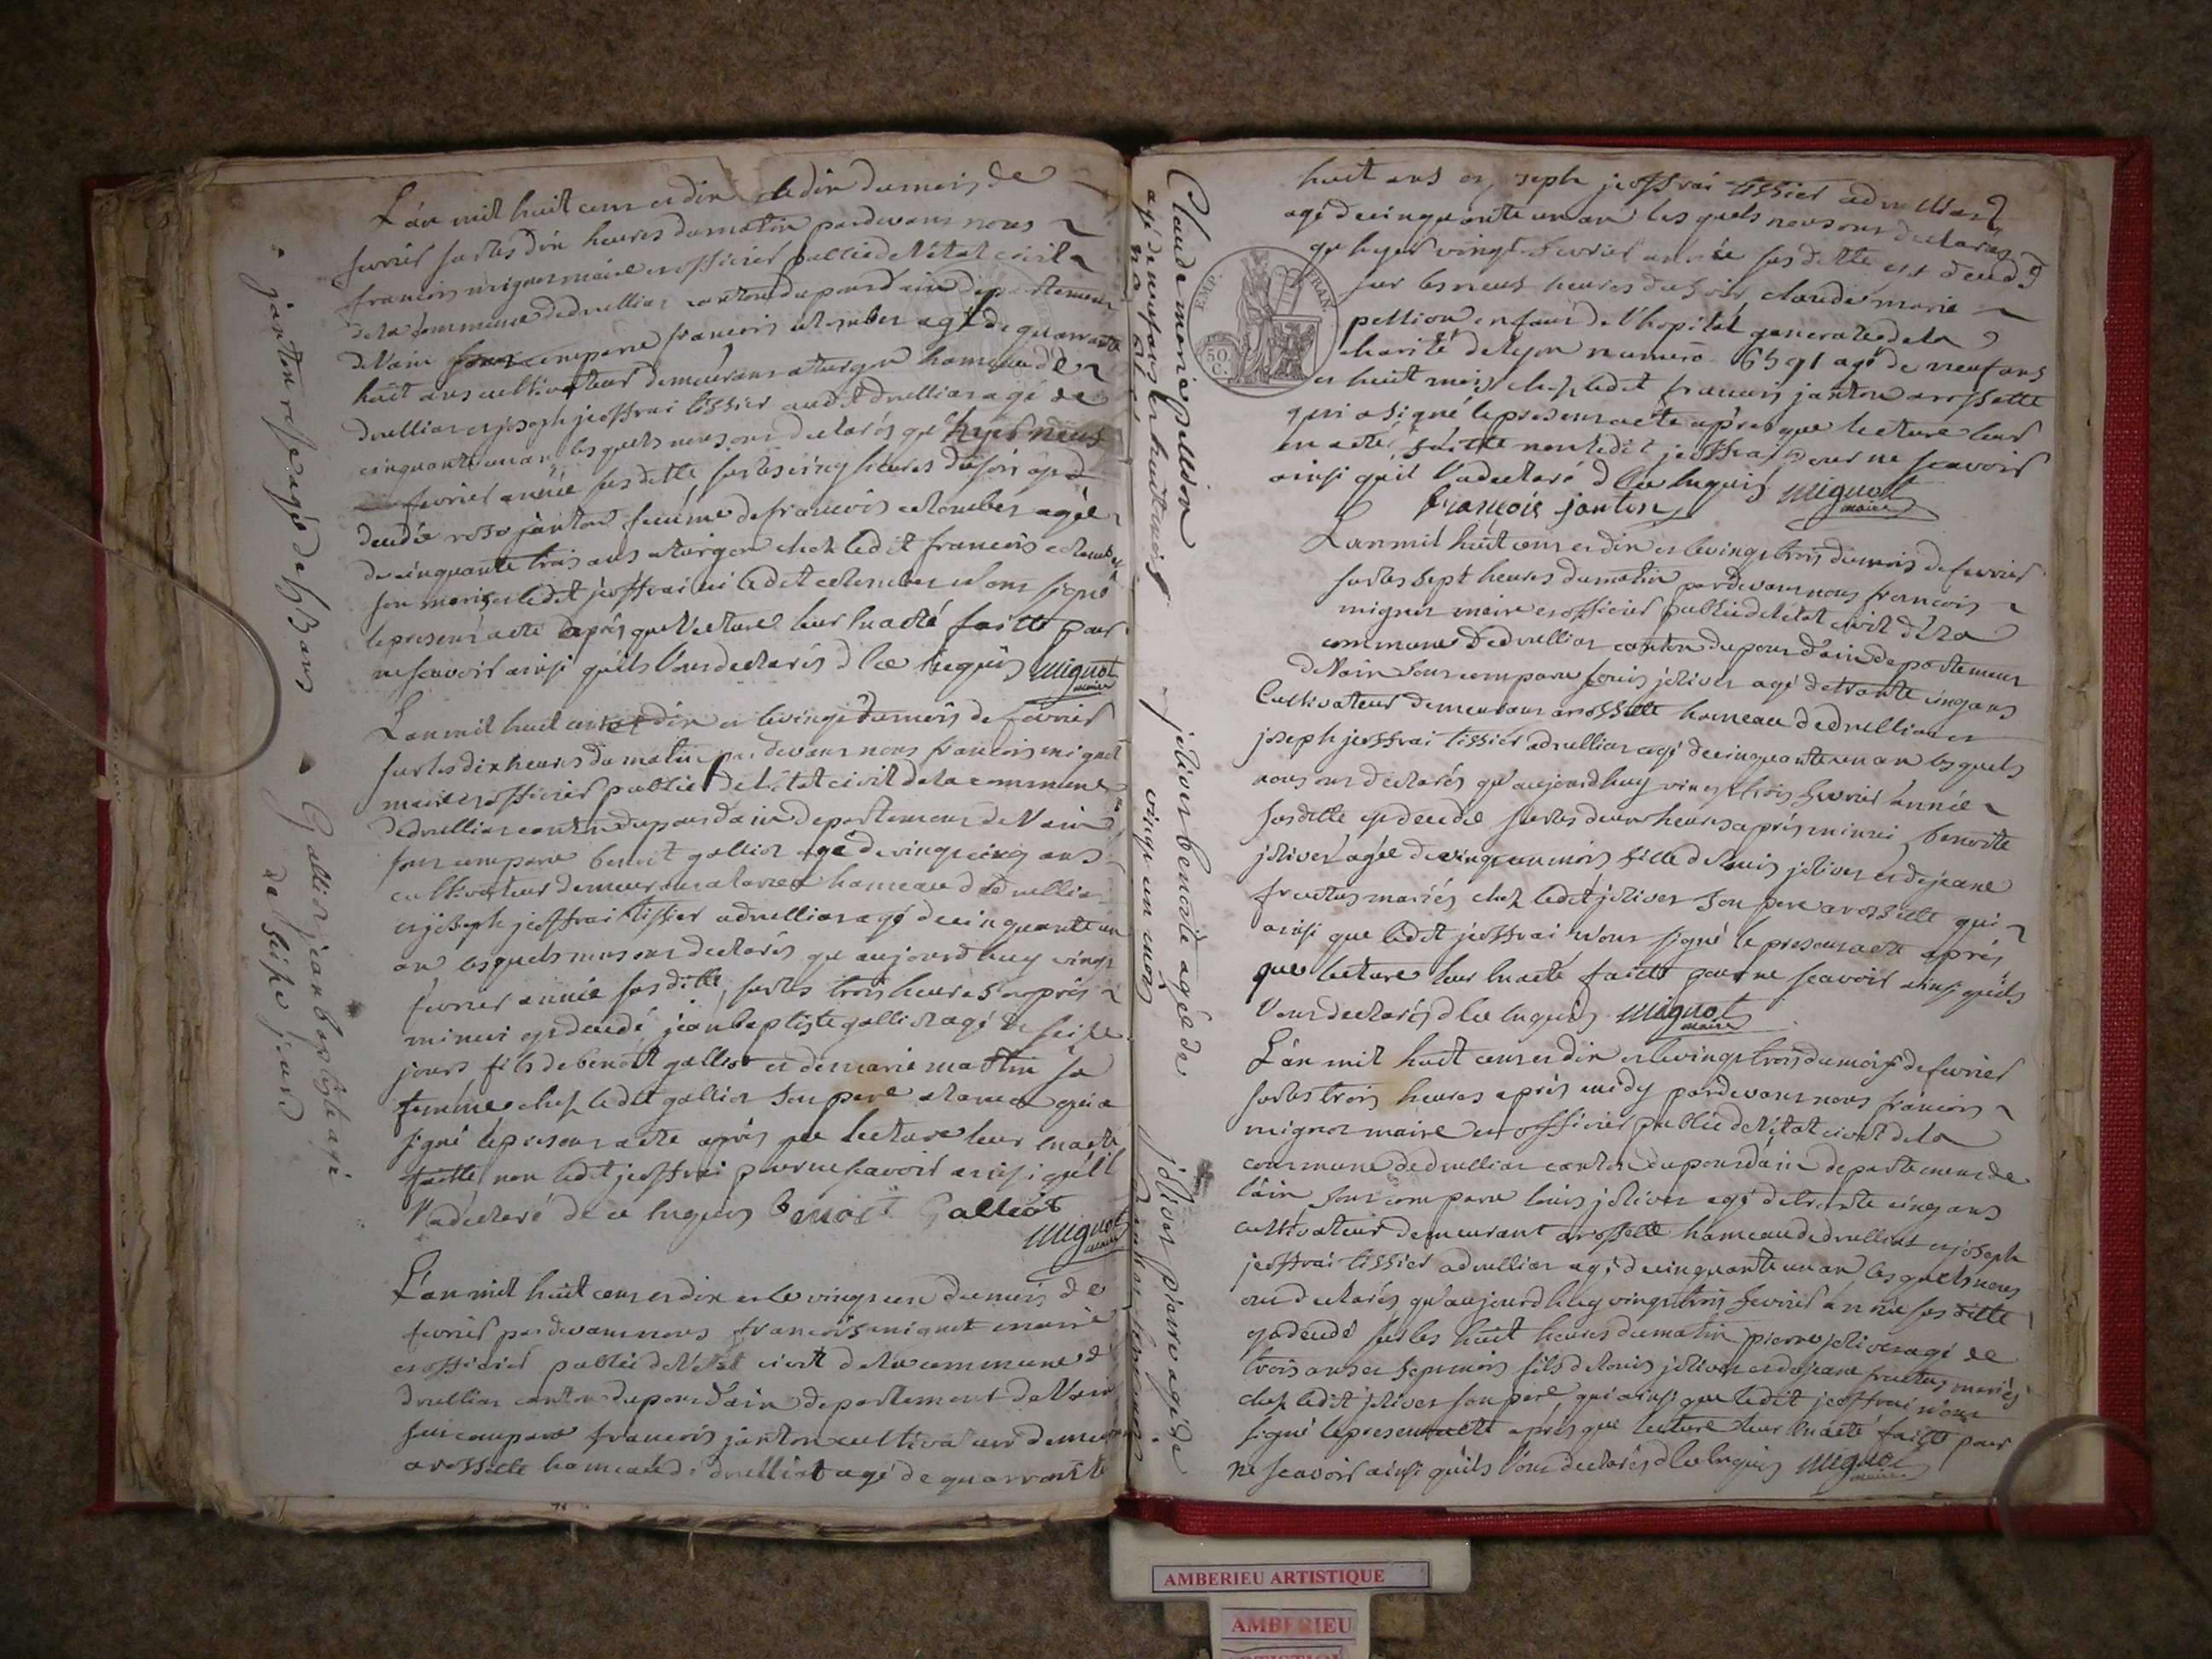 janton rose agée de 53 ans
Galliot jean baptiste agé
de seise jours
L'an mil huit cent et dix le dix du mois de
fevrier sur les dix heures du matin pardevant nous
francois mignot maire et officier public de l'état civil
de la commune de druilliat canton du pont d'ain departement
de l'ain sont comparu francois colomber agé de quarante
huit ans cultivateur demeurant a turgon hameau de
druilliat et joseph jeoffrai tissier audit druilliat agé de
cinquante un an les quels nous ont declarés qu'hyer neuf
fevrier année susditte sur les cinq heures du soir est
decedée rose janton femme de francois colomber agée
de cinquante trois ans a turgon chez ledit francois colomber
son mari et ledit jeoffrai ni ledit colomber n'ont signé
le present acte après que lecture leur en a eté faitte pour
ne scavoir ainsi qu'ils l'ont declarés de ce requis Mignot
maire
L'an mil huit cent et dix et le vingt du mois de fevrier
sur les dix heures du matin par devant nous francois mignot
maire et officier public de l'état civil de la commune
de druilliat canton du pont d'ain departement de l'ain
sont comparu benoit galliot agé de vingt cinq ans
cultivateur demeurant a hameau de druilliat
et joseph jeoffrai tissier a druilliat agé de cinquante un
an lesquels nous ont declarés qu'aujourd'huy vingt
fevrier année susditte, sur les trois heures après
minuit est decedé jean baptiste galliot agé de seise
jours fils de benoit galliot et de marie martin sa
femme chez ledit galliot son pere a qui a
signé le present acte après que lecture leur en a eté
faitte, non ledit jeoffrai pour ne scavoir ainsi qu'il
l'a declaré de ce requis Benoit Galliot
Mignot
maire
L'an mil huit cent et dix et le vingt un du mois de
fevrier par devant nous francois mignot maire
et officier public de l'état civil de la commune de
druilliat canton du pont d'ain departement de l'ain
sont comparu francois janton cultivateur demeurant
a rossette hameau de druilliat agé de quarante
Claude marie pellion
agé de neuf ans et huit mois
joliver benoite agée de
vingt un mois
joliver pierre agé de
trois ans sept mois
EMP. FRAN.
50 C.
huit ans et joseph jeoffrai tissier a druilliat
agé de cinquante un an les quels nous ont declarés
qu'hyer vingt fevrier année susditte est decedé
sur les neuf heures du soir claude marie
pellion enfant de l'hopital generale de la
charité de lyon numero 6591 agé de neuf ans
et huit mois chez ledit francois janton a rossette
qui a signé le present acte après que lecture leur
en a eté faitte non ledit jeoffrai pour ne scavoir
ainsi qu'il l'a declaré de ce requis Mignot
françois janton maire
L'an mil huit cent et dix et le vingt trois du mois de fevrier
sur les sept heures du matin pardevant nous francois
mignot maire et officier public de l'état civil de la
commune de druilliat canton du pont d'ain departement
de l'ain sont comparu louis joliver agé de trante cinq ans
cultivateur demeurant a rossette hameau de druilliat et
joseph jeoffrai tissier a druilliat agé de cinquante un an les quels
nous ont declarés qu'aujourd'huy vingt trois fevrier année
susditte est decedée sur les deux heures après minuit benoite
joliver agée de vingt un mois fille de louis joliver et de jeane
fructus mariés chez ledit joliver son pere a rossette qui
ainsi que ledit jeoffrai n'ont signé le present acte après
que lecture leur en a eté faitte pour ne scavoir ainsi qu'ils
l'ont declarés de ce requis Mignot
maire
L'an mil huit cent et dix et le vingt trois du mois de fevrier
sur les trois heures après midy pardevant nous francois
mignot maire et officier public de l'état civil de la
commune de druilliat canton du pont d'ain departement de
l'ain sont comparu louis joliver agé de trante cinq ans
cultivateur demeurant a rossette hameau de druilliat et joseph
jeoffrai tissier a druilliat agé de cinquante un an les quels nous
ont declarés qu'aujourd'huy vingt trois fevrier année susditte
est decedé sur les huit heures du matin pierre joliver agé de
trois ans et sept mois fils de louis joliver et de jeane fructus mariés
chez ledit joliver son pere, qui ainsi que ledit jeoffrai n'ont
signé le present acte après que lecture leur en a eté faitte pour
ne scavoir ainsi qu'ils l'ont declarés de ce requis Mignot
maire
AMBERIEU ARTISTIQUE
AMBERIEU
ARTISTIQUE